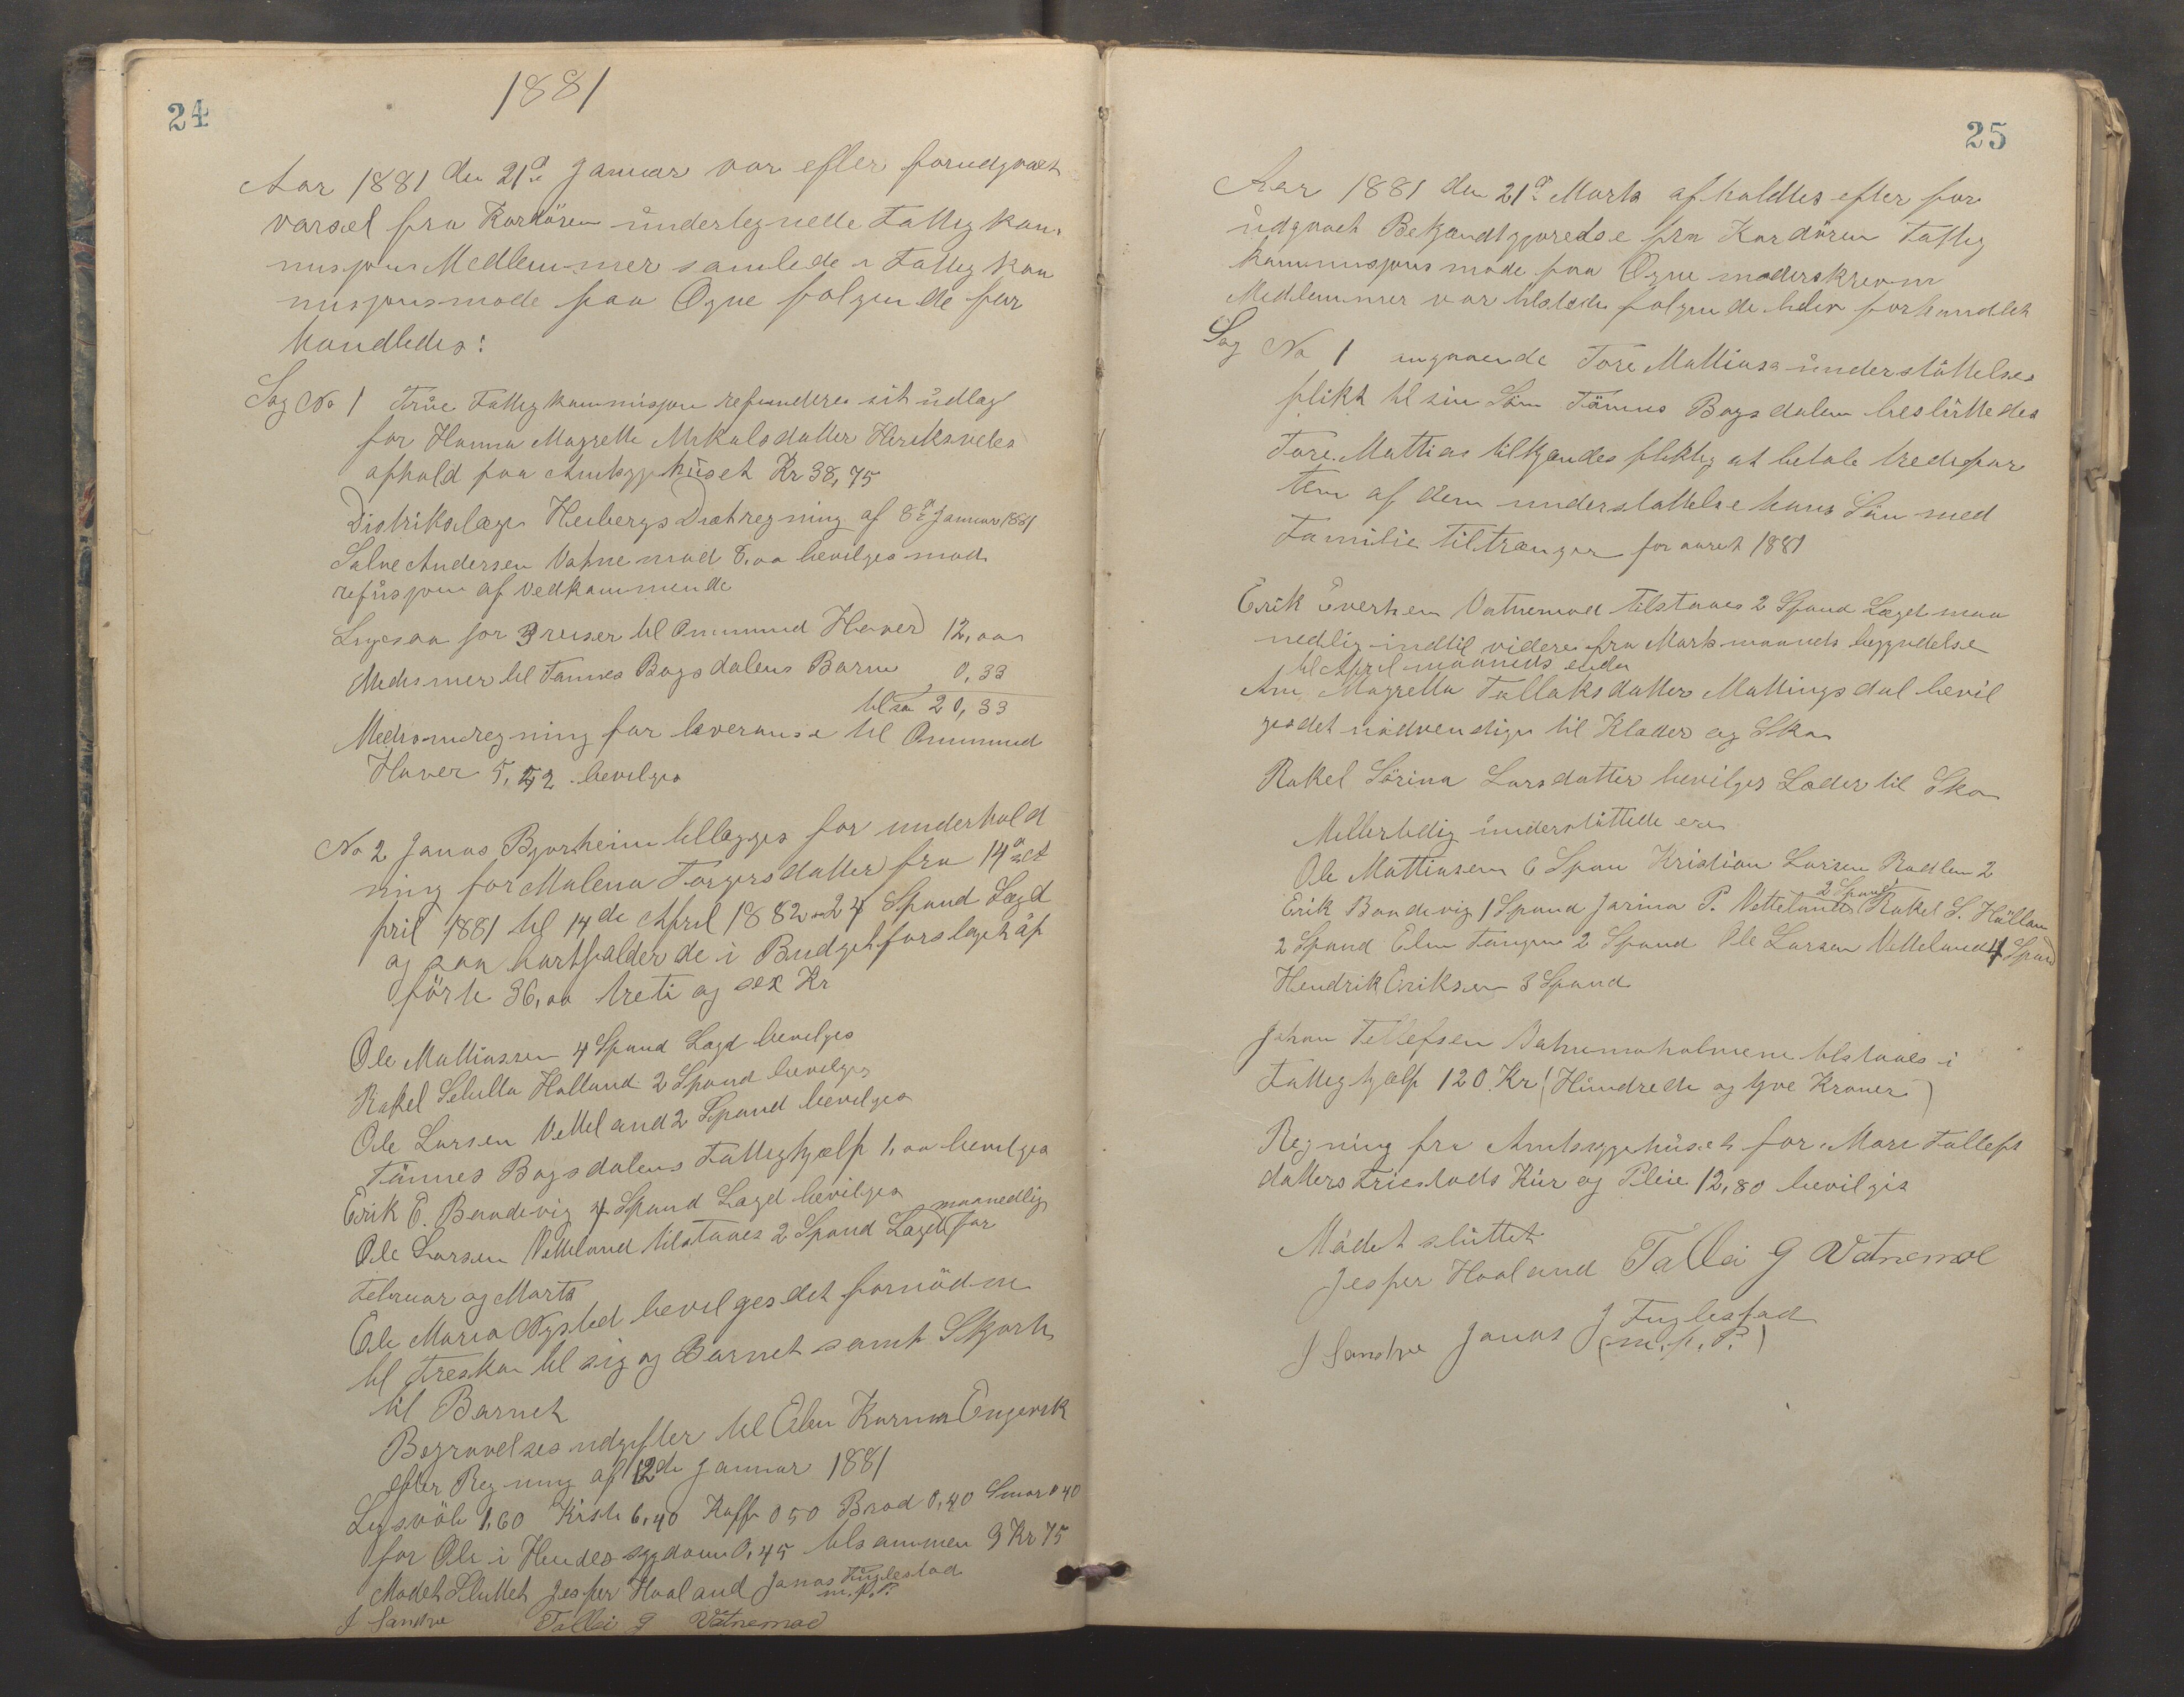 24
1881
Aar 1881 den 21de Januar var efter forudgaaet
varsel fra Kordören undertegnede Fattigkom
misjons Medlemmer samlede i Fattigkom
misjonsmöde paa Ogne folgende for
handledes:
Sag No 1 True Fattigkommisjon refunderes sit udlæg
for Hanna Magrette Mikalsdatter Heriksveles
ophold paa Amtsygehuset Kr 38,75
Distrikslæge Heibergs Diætregning af 8de Januar 1881
Salve Andersen Vatnemod 8,00 bevilges mod
refusjon af vedkommende
Ligesaa for 3 reiser til Ommund Haver 12,00
Medisiner til Tönnes Bogsdalens Barn 0,33
tilsa 20,33
Medisinregning for leveranse til Ommund
Haver 5,52 bevilges
No 2 Janas Bjorheim tillægges for underhold
ning for Malena Torgersdatter fra 14de A
pril 1881 til 14de April 1882 24 Spand Lægd
og saa bortfalder de i Budgetforslaget op
förte 36,00 treti og sex Kr
Ole Mattiassen 4 Spand Lægd bevilges
Rakel Selulla Holland 2 Spand bevilges
Ole Larsen Vetteland 2 Spand bevilges
Tönnes Bogsdalens Fattighjælp 1,00 bevilges
Erik E. Bandevig 4 Spand Lægd bevilges
Ole Larsen Vetteland tilstaaes 2 Spand Lægd maanedlig for
Februar og Marts
Ole Maria Nysted bevilges det fornödne
til Tresko til sig og Barnet samt Skjorte
til Barnet
Begravelses udgifter til Elen Karina Engevik
efter Regning af 12de Januar 1881
Ligsvöb 1,60 Kiste 6,40 Kaffe 0 50 Brod 0,40 Smor 0 40
for Ole i Hendes sygdom 0,45 tilsammen 9 Kr 75
Modet Sluttet Jesper Hoaland Janas Fuglestad
m.p.P.
J Sandve Tallei G Vatnemod
25
Aar 1881 den 21de Marts afholdtes efter for
udgaaet Bekjendtgjorelse fra Kordören Fattig
kommisjons möde paa Ogne
Medlemmer var tilstede folgende blev forhandlet
Sag No 1 angaaende Tore Mattiass understöttelses
plikt til sin Sön Tönnes Bogsdalen besluttedes
Tore Mattias tilkjendes pliktig at betale tredepar
ten af den understottelse hans Sön med
Familie tiltrænger for aaret 1881
Erik Everksen Vatnemod tilstaaes 2 Spand Lægd maa
nedlig indtil videre fra Marts maaneds begyndelse
til April maaneds ende
Ane Magrella Tallaksdatter Mattingsdal bevil
ges det nödvendige til Klæder og Sko
Rakel Sörina Larsdatter bevilges Læder til Sko
Midlertidig understöttede ere
Ole Mattiasen 6 Span Kristian Larsen Rodlen 2
Erik Bandevig 1 Spand Jarina P. Vetteland 2 Spand Rakel S. Hollan
2 Spand Elen Tangen 2 Spand Ole Larsen Vetteland 4 Spand
Hendrik Eriksen 3 Spand
Johan Tellefsen Vatnemoholmene tilstaaes i
Fattighjælp 120 Kr (Hundrede og tyve Kroner)
Regning fra Amtsygehuset for Mari Tallefs
datters Kur og Pleie 12,80 bevilges
Mödet sluttet
Jesper Hoaland Tallei G Vatnemoe
J Sandve Janas J Fuglestad
(m.p.P.)